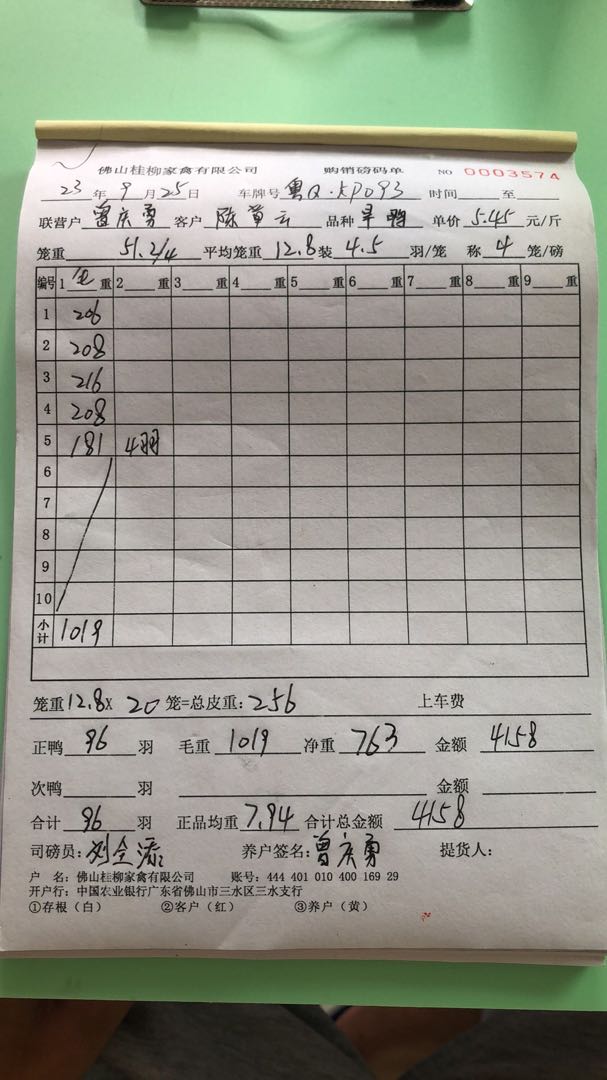 佛山桂柳家禽有限公司 购销磅码单 NO 0003574
23年9月25日 车牌号 粤Q·KP093 时间 至
联营户 曾庆勇 客户 陈 云 品种 旱鸭 单价 5.45 元/斤
笼重 51.2/4 平均笼重 12.8 装 4.5 羽/笼 称 4 笼/磅
编号 1 毛 重 2 重 3 重 4 重 5 重 6 重 7 重 8 重 9 重
1 206
2 208
3 216
4 208
5 181 4羽
6
7
8
9
10
小计 1019
笼重12.8X 20 笼=总皮重: 256 上车费
正鸭 96 羽 毛重 1019 净重 763 金额 4158
次鸭 羽 金额
合计 96 羽 正品均重 7.94 合计总金额 4158
司磅员: 刘 养户签名: 曾庆勇 提货人:
户 名: 佛山桂柳家禽有限公司 账号: 444 401 010 400 169 29
开户行: 中国农业银行广东省佛山市三水区三水支行
①存根（白） ②客户（红） ③养户（黄）